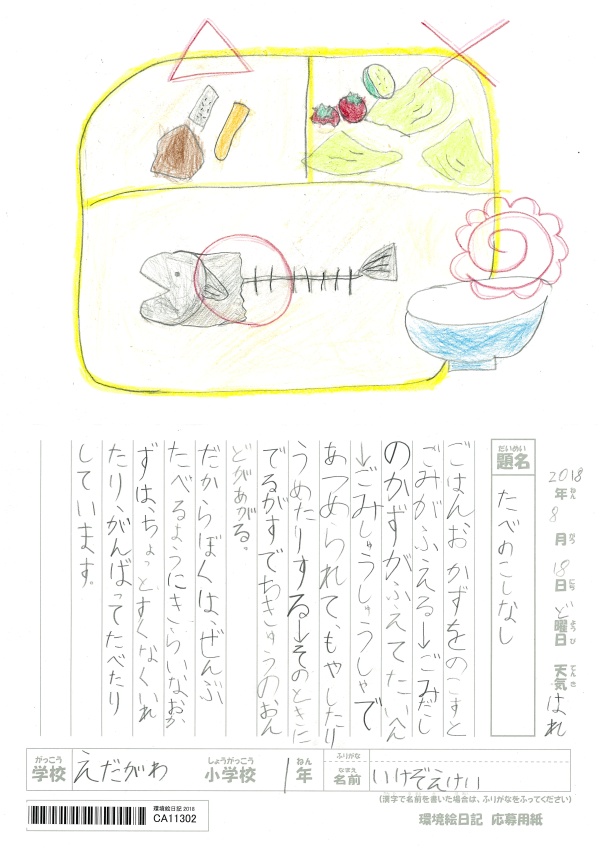 2018年ねん 8月がつ 18日にち ど曜日ようび 天気てんき はれ
題名だいめい
たべのこしなし
ごはん、おかずをのこすと
ごみがふえる→ごみだし
のかずがふえてたいへん
→ごみしゅうしゅうしゃで
あつめられて、もやしたり
うめたりする→そのときに
でるがすでちきゅうのおん
どがあがる。
だからぼくは、ぜんぶ
たべるようにきらいなおか
ずは、ちょっとすくなくいれ
たり、がんばってたべたり
しています。
学校がっこう えだがわ 小学校しょうがっこう 1年ねん ふりがな 名前なまえ いけぞえけい
(漢字で名前を書いた場合は、ふりがなをふってください)
環境絵日記2018
CA11302
環境絵日記 応募用紙